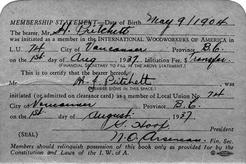 MEMBERSHIP STATEMENT—Date of Birth May 9/1904
The bearer, Mr. H. Pritchett
was initiated as a member in the INTERNATIONAL WOODWORKERS OF AMERICA in
L.U. 74 City of Vancouver Province B.C.
on the 1st day of Aug 1937. Initiation Fee $ Transfer
(FINANCIAL SECRETARY TO FILL IN THE ABOVE STATEMENT)
This is to certify that the bearer hereof;
Mr. H. J. Pritchett
(BEARER SIGNS IN THIS SPACE)
was initiated (or admitted on clearance card) as a member of Local Union No. 74
City of Vancouver Province B.C.
on the 1st day of August 1937.
(SEAL) Pres.
Fin. Sec.
Members should relinquish possession of this book only as provided for by the
Constitution and Laws of the I. W. of A.